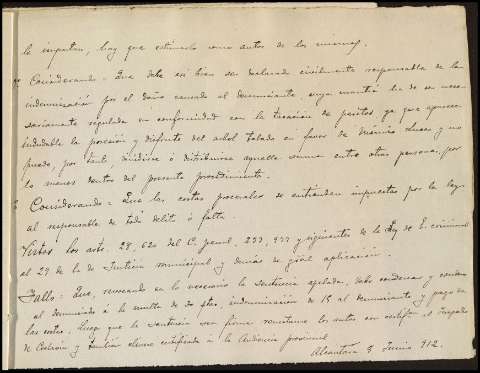 le imputan, hay que estimarle como autor de los mismos.
Considerando: Que debe así bien ser declarado civilmente responsable de la
indemnización por el daño causado al denunciante, cuya cuantía ha de ser nece-
sariamente regulada en conformidad con la tasación de peritos ya que aparece
indudable la posesión y disfrute del arbol talado en favor de y no
puede, por tanto dividirse ó distribuirse aquella suma entre otras personas, por
lo menos dentro del presente procedimiento.
Considerando: Que las costas procesales se entienden impuestas por la ley
al responsable de todo delito ó falta.
Vistos los arts. 28, 620 del C. penal, y siguientes de la Ley de E. criminal
el 29 de la de Justicia municipal y demás de gral aplicación.
Fallo: Que, revocando en lo necesario la sentencia apelada, debo condenar y condeno
al denunciado á la multa de ptas, indemnización de 15 al denunciante y pago de
las costas. Luego que la sentencia sea firme remítanse los autos con certifón. al Juzgado
de y certificada á la Audiencia provincial
Alcántara Junio 912.